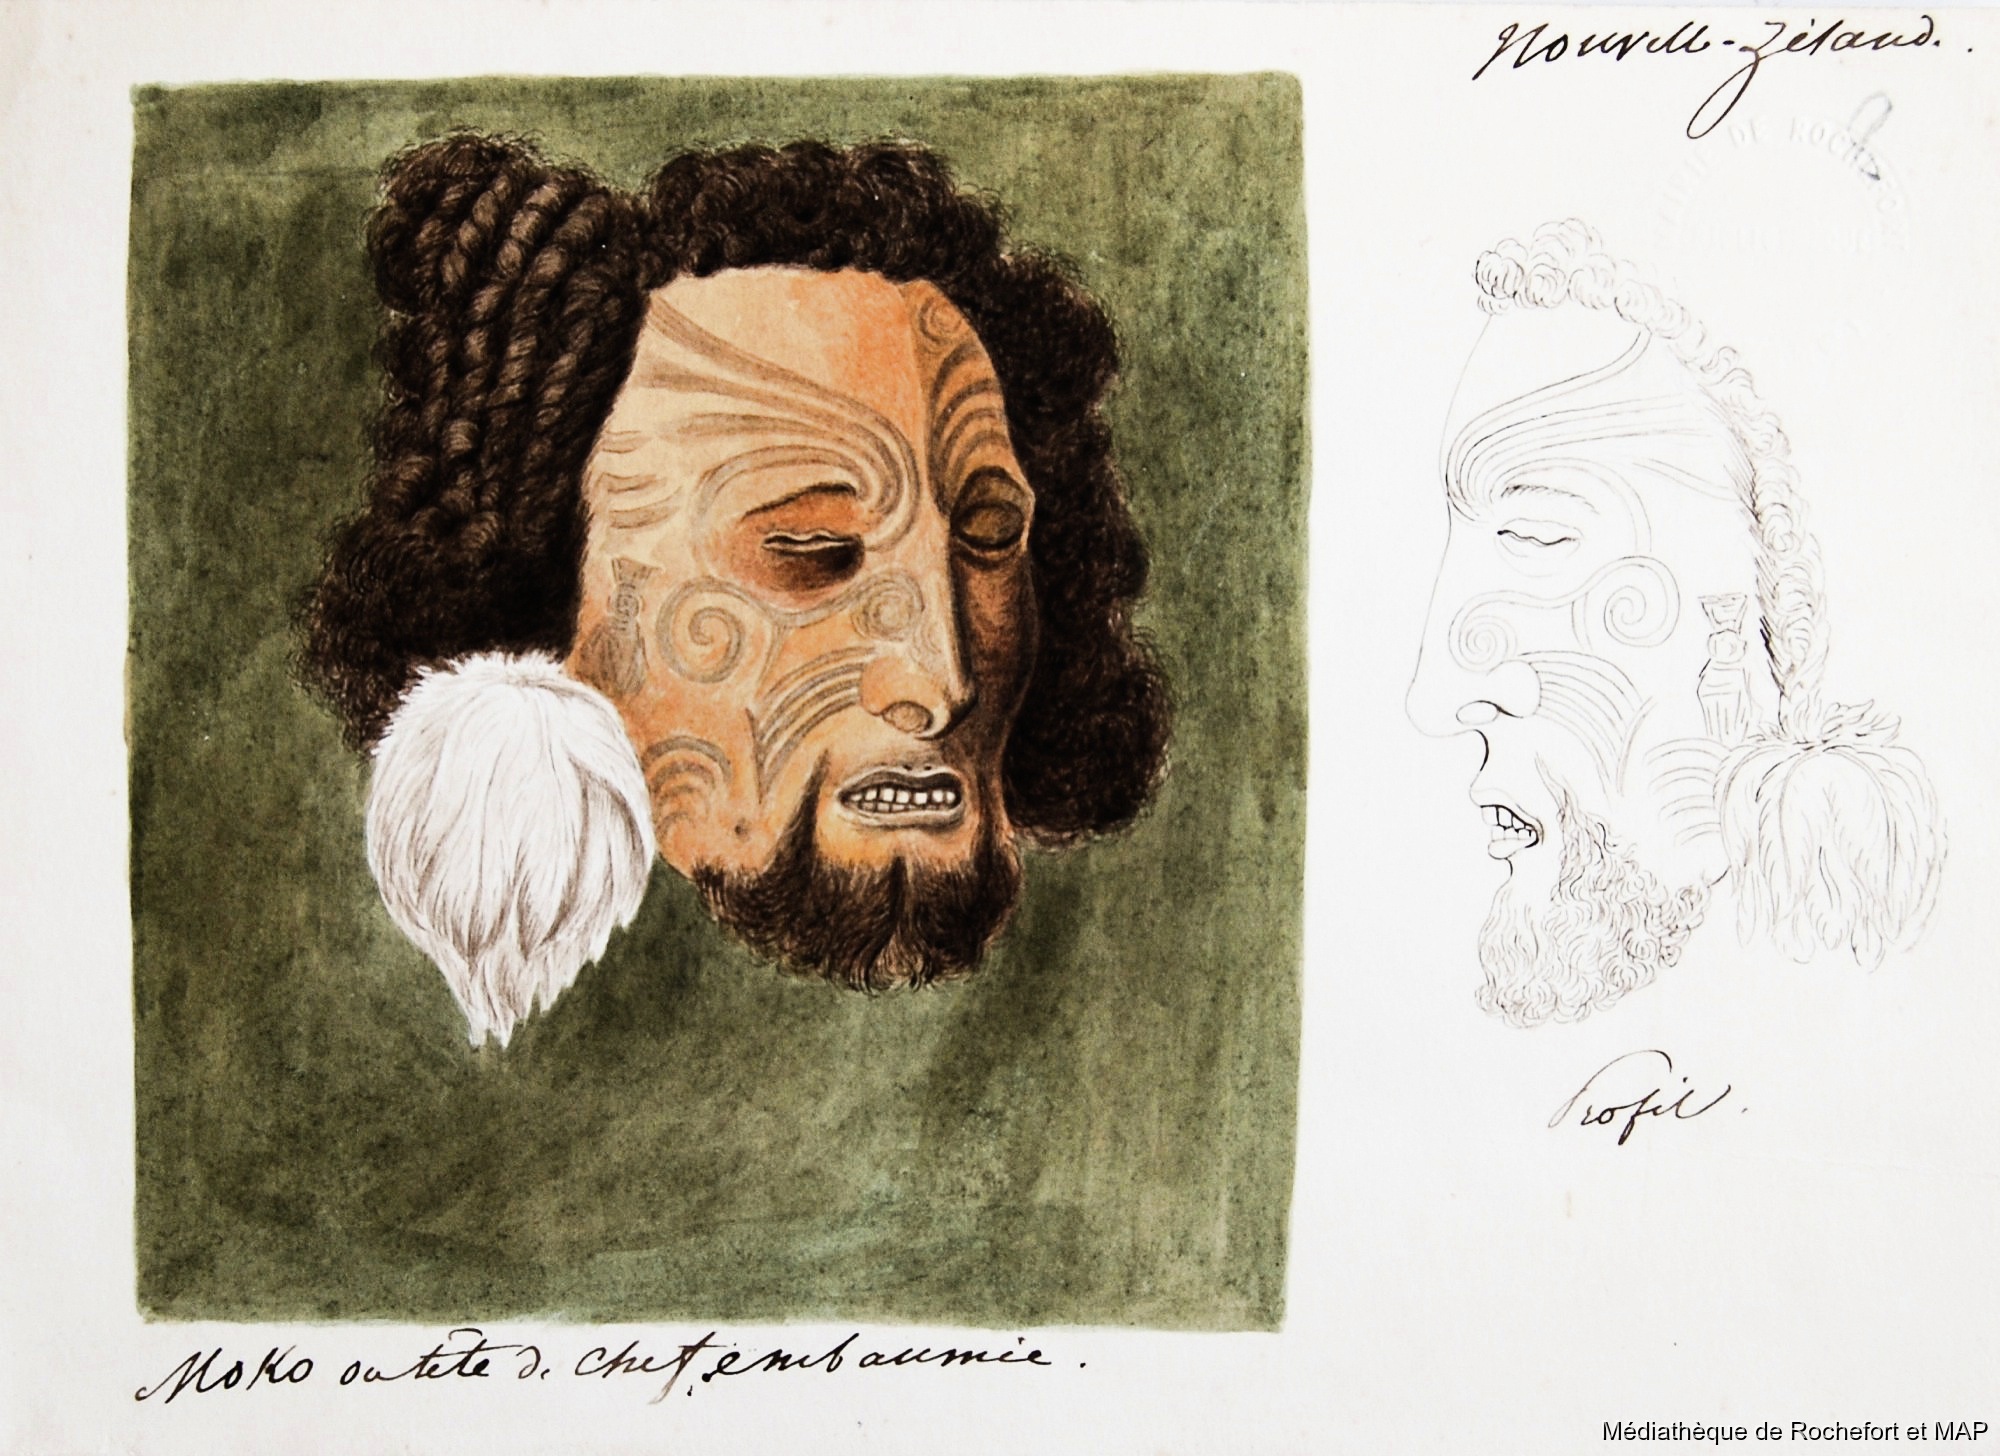 Nouvelle-Zéland.
DE ROCHEFORT
Moko ou tête de chef embaumée.
Profil.
Médiathèque de Rochefort et MAP